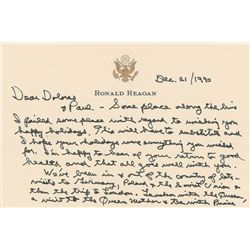 RONALD REAGAN
Dec. 21/1990
Dear Dolores
& Paul - Some place along the line
I failed some place with regard to wishing you
happy holidays. This will have to substitute and
I hope your holidays were everything you wished
for. I'm happy to hear of your return to good
health, and that all goes well with you.
We've been in & out of the country of late-
visits to Germany, Poland, the Soviet Union &
then the trip to London. Lunch with the Queen,
a visit to the Queen Mother & tea with Prince